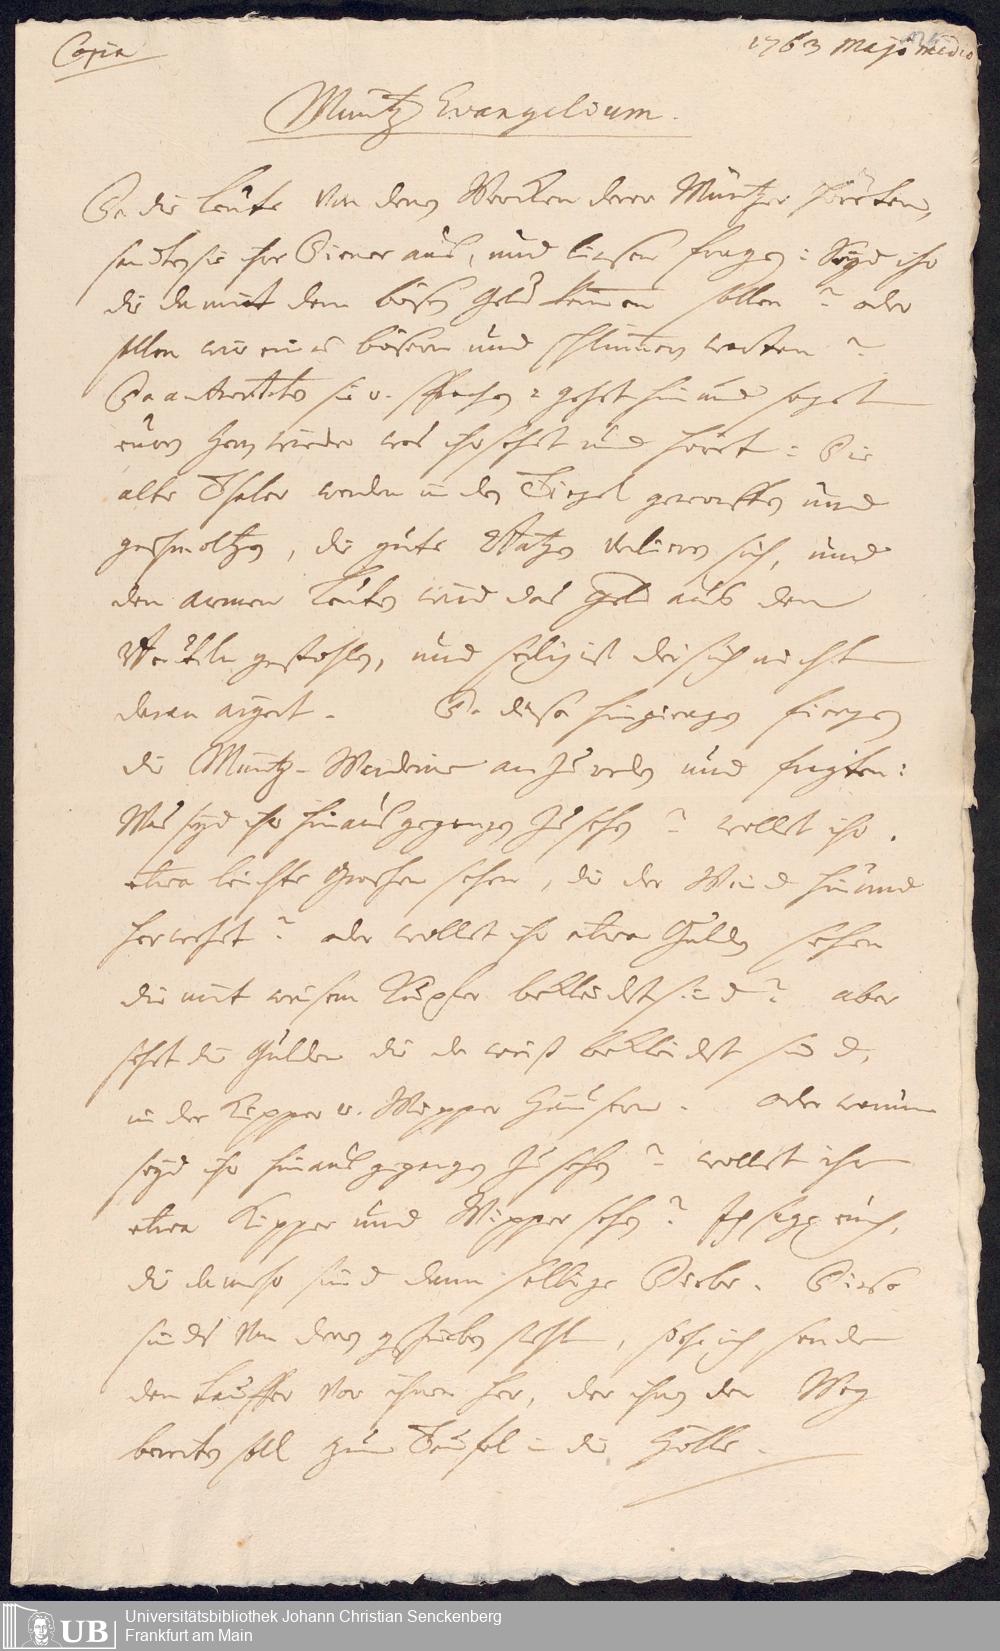 Copia
1763 Majo medio
Müntz Evangelium.
Da die Leüte von denen Wercken derer Müntzer hörten,
sandten sie ihre Diener aus, und liesen fragen: Seyd ihr
die da mit dem bösen Geld kommen sollen? oder
sollen wir eines bösern und schlimmern warten?
Da antworteten sie u. sprachen: gehet hin und saget
euren Herrn wieder was ihr sehet und höret: Die
alte Thaler werden in den Tiegel geworffen und
geschmoltzen, die gute Batzen verlieren sich, und
den armen Leuten wird das Geld aus dem
Beutel gestohlen, und seelig ist der sich nicht
daran ärgert. Da diese hingiengen fiengen
die Müntz-Wardeine an zu reden und fragten:
Was seyd ihr hinaus gegangen zu sehen? wollet ihr
etwa leichte Groschen sehen, die der Wind hin und
her wehet? oder wollet ihr etwa Gulden sehen
die mit weisem Kupfer bekleidet sind? aber
sehet die Gulden die da weiß bekleidet sind,
in der Kipper u. Wipper Häusern. Oder warum
seyd ihr hinaus gegangen zu sehen? wollet ihr
etwa Kipper und Wipper sehen? Ich sage euch,
die da mehr sind dann selbige Diebe. Diese
sinds von denen geschrieben steht, siehe ich sende
den Lauffer vor ihnen her, der ihnen den Weg
bereiten soll zum Teufel in die Hölle.
Universitätsbibliothek Johann Christian Senckenberg
Frankfurt am Main
UB